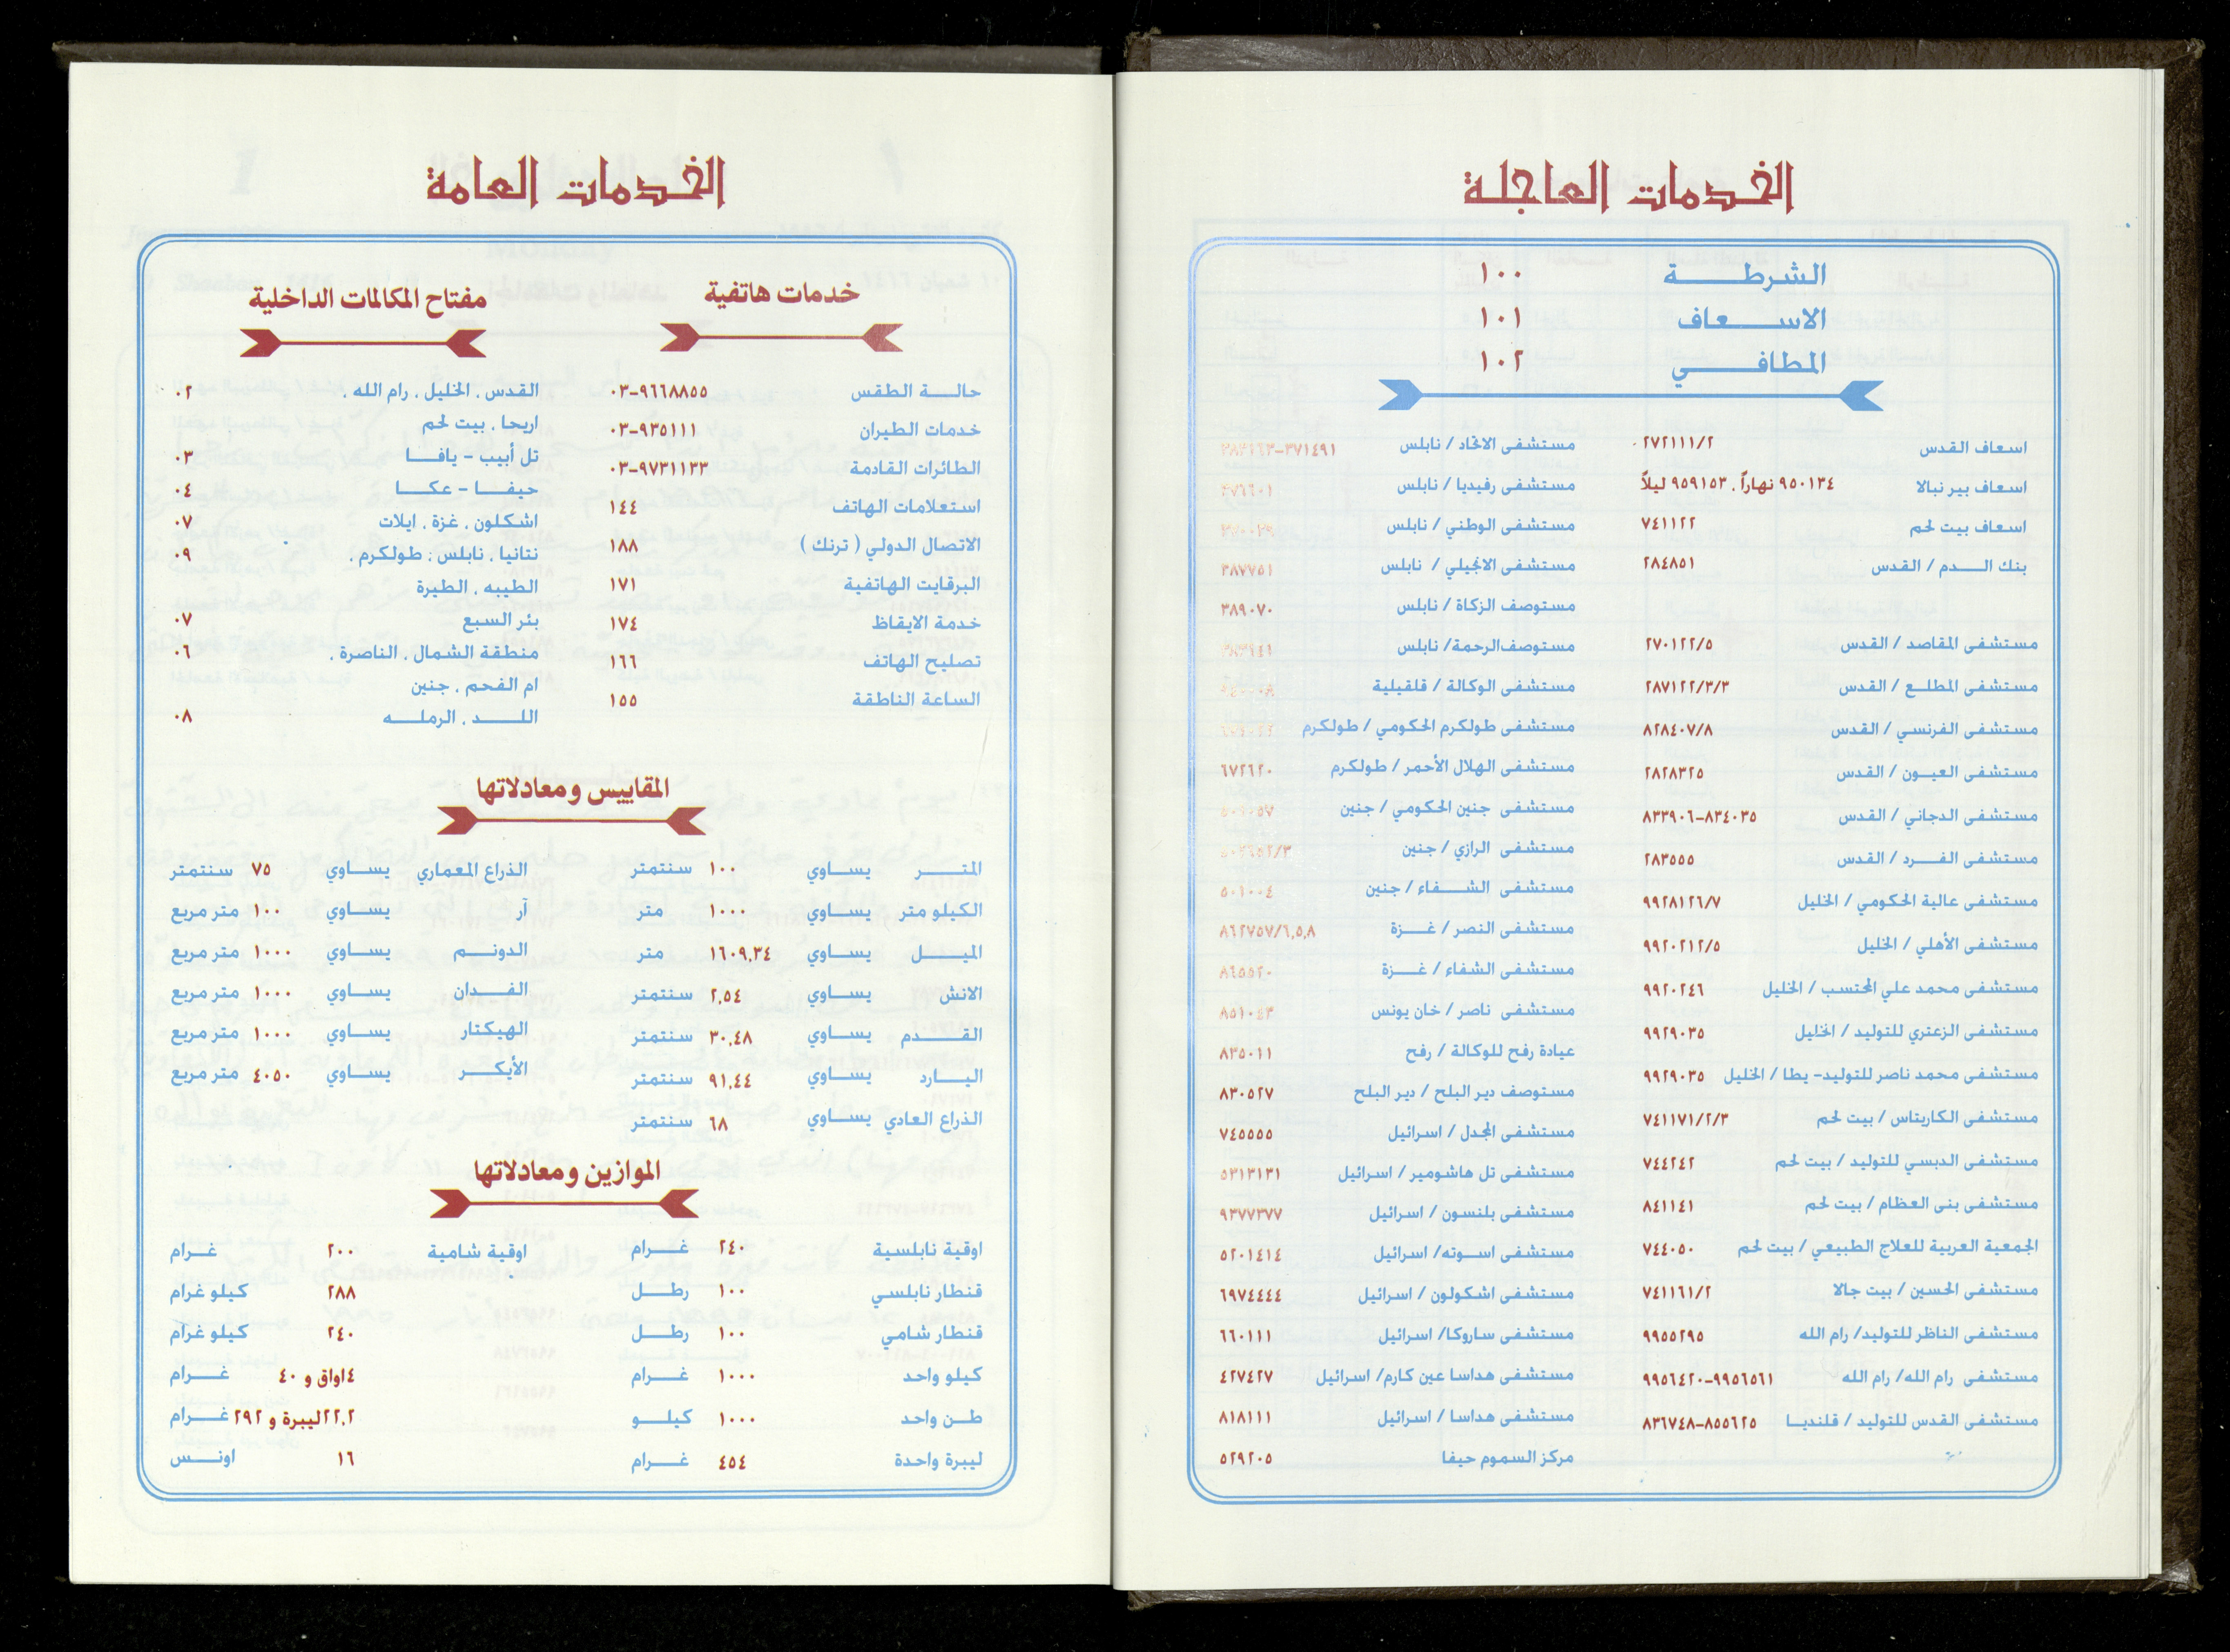 الخدمات العاجلة
الشرطة ١٠٠
الاسعاف ١٠١
المطافي ١٠٢
اسعاف القدس ٢٧٢١١١/٢
اسعاف بير نبالا ٩٥٠١٣٤ نهاراً ، ٩٥٩١٥٣ ليلاً
اسعاف بيت لحم ٧٤١١٢٢
بنك الدم / القدس ٢٨٤٨٥١
مستشفى المقاصد / القدس ٢٧٠١٢٢/٥
مستشفى المطلع / القدس ٢٨٧١٢٢/٣/٣
مستشفى الفرنسي / القدس ٨٢٨٤٠٧/٨
مستشفى العيون / القدس ٢٨٢٨٣٢٥
مستشفى الدجاني / القدس ٨٣٣٩٠٦-٨٣٤٠٣٥
مستشفى الفرد / القدس ٢٨٣٥٥٥
مستشفى عالية الحكومي / الخليل ٩٩٢٨١٢٦/٧
مستشفى الأهلي / الخليل ٩٩٢٠٢١٢/٥
مستشفى محمد علي المحتسب / الخليل ٩٩٢٠٢٤٦
مستشفى الزعتري للتوليد / الخليل ٩٩٢٩٠٣٥
مستشفى محمد ناصر للتوليد- يطا / الخليل ٩٩٢٩٠٣٥
مستشفى الكاريتاس / بيت لحم ٧٤١١٧١/٢/٣
مستشفى الدبسي للتوليد / بيت لحم ٧٤٤٢٤٢
مستشفى بنى العظام / بيت لحم ٨٤١١٤١
الجمعية العربية للعلاج الطبيعي / بيت لحم ٧٤٤٠٥٠
مستشفى الحسين / بيت جالا ٧٤١١٦١/٢
مستشفى الناظر للتوليد/ رام الله ٩٩٥٥٢٩٥
مستشفى رام الله/ رام الله ٩٩٥٦٤٢٠-٩٩٥٦٥٦١
مستشفى القدس للتوليد / قلنديا ٨٣٦٧٤٨-٨٥٥٦٢٥
مستشفى الاتحاد / نابلس ٣٧١٤٩١
مستشفى رفيديا / نابلس
مستشفى الوطني / نابلس
مستشفى الانجيلي / نابلس ٣٨٧٧٥١
مستوصف الزكاة / نابلس ٣٨٩٠٧٠
مستوصف الرحمة/ نابلس
مستشفى الوكالة / قلقيلية
مستشفى طولكرم الحكومي / طولكرم
مستشفى الهلال الأحمر / طولكرم ٦٧٢٦٢٠
مستشفى جنين الحكومي / جنين
مستشفى الرازي / جنين
مستشفى الشفاء / جنين ٥٠١٠٠٤
مستشفى النصر / غزة ٨٦٢٧٥٧/٦,٥,٨
مستشفى الشفاء / غزة ٨٦٥٥٢٠
مستشفى ناصر / خان يونس ٨٥١٠٤٣
عيادة رفح للوكالة / رفح ٨٣٥٠١١
مستوصف دير البلح / دير البلح ٨٣٠٥٢٧
مستشفى المجدل / اسرائيل ٧٤٥٥٥٥
مستشفى تل هاشومير / اسرائيل ٥٣١٣١٣١
مستشفى بلنسون / اسرائيل ٩٣٧٧٣٧٧
مستشفى اسوته/ اسرائيل ٥٢٠١٤١٤
مستشفى اشكولون / اسرائيل ٦٩٧٤٤٤٤
مستشفى ساروكا/ اسرائيل ٦٦٠١١١
مستشفى هداسا عين كارم/ اسرائيل ٤٢٧٤٢٧
مستشفى هداسا / اسرائيل ٨١٨١١١
مركز السموم حيفا ٥٢٩٢٠٥
الخدمات العامة
خدمات هاتفية
حالة الطقس ٠٣-٩٦٦٨٨٥٥
خدمات الطيران ٠٣-٩٣٥١١١
الطائرات القادمة ٠٣-٩٧٣١١٣٣
استعلامات الهاتف ١٤٤
الاتصال الدولي ( ترنك ) ١٨٨
البرقايت الهاتفية ١٧١
خدمة الايقاظ ١٧٤
تصليح الهاتف ١٦٦
الساعة الناطقة ١٥٥
مفتاح المكالمات الداخلية
القدس ، الخليل ، رام الله ، ٠٢
اريحا ، بيت لحم
تل أبيب - يافا ٠٣
حيفا - عكا ٠٤
اشكلون ، غزة ، ايلات ٠٧
نتانيا ، نابلس ، طولكرم ، ٠٩
الطيبه ، الطيرة
بئر السبع ٠٧
منطقة الشمال ، الناصرة ، ٠٦
ام الفحم ، جنين
اللد ، الرمله ٠٨
المقاييس ومعادلاتها
المتر يساوي ١٠٠ سنتمتر
الكيلو متر يساوي ١٠٠٠ متر
الميل يساوي ١٦٠٩,٣٤ متر
الانش يساوي ٢,٥٤ سنتمتر
القدم يساوي ٣٠,٤٨ سنتمتر
اليارد يساوي ٩١,٤٤ سنتمتر
الذراع العادي يساوي ٦٨ سنتمتر
الذراع المعماري يساوي ٧٥ سنتمتر
آر يساوي ١٠٠ متر مربع
الدونم يساوي ١٠٠٠ متر مربع
الفدان يساوي ١٠٠٠ متر مربع
الهيكتار يساوي ١٠٠٠ متر مربع
الأيكر يساوي ٤٠٥٠ متر مربع
الموازين ومعادلاتها
اوقية نابلسية ٢٤٠ غرام اوقية شامية ٢٠٠ غرام
قنطار نابلسي ١٠٠ رطل ٢٨٨ كيلو غرام
قنطار شامي ١٠٠ رطل ٢٤٠ كيلو غرام
كيلو واحد ١٠٠٠ غرام ٤اواق و ٤٠ غرام
طن واحد ١٠٠٠ كيلو ٢٢,٢ليبرة و ٢٩٢ غرام
ليبرة واحدة ٤٥٤ غرام ١٦ اونس